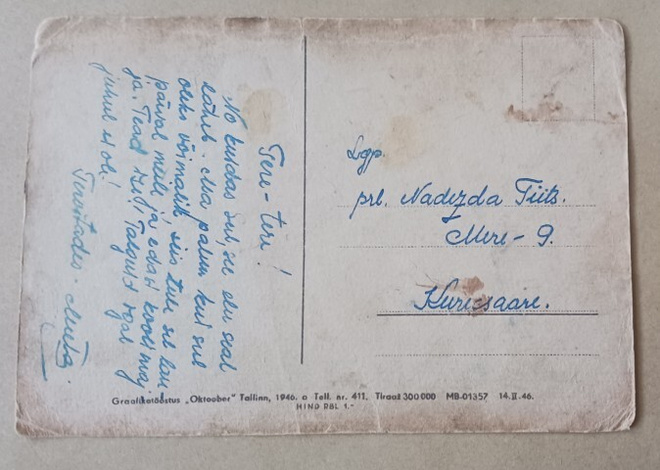 Tere-tere!
No kuidas sul, se elu seal
läheb. Ma palun kui sul
oleks võimalik, siis tule sel lau
päeval meile ja edasi koolimaj
ja. Tead ju! Talgust igal
juhul ei ole!
Tervitades. Meeta.
Lgp.
prl. Nadezda Tiits.
Mere-9.
Kuressaare.
Graafikatööstus „Oktoober" Tallinn, 1946. a Tell. nr. 411. Tiraaž 300 000 MB-01357 14.II.46.
HIND RBL 1.-